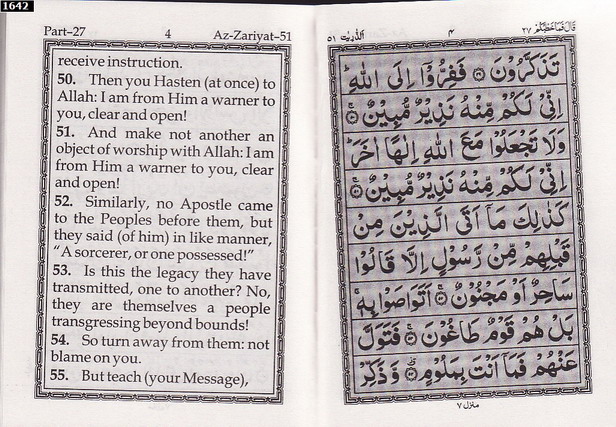 1642
Part-27 4 Az-Zariyat-51
receive instruction.
50. Then you Hasten (at once) to
Allah: I am from Him a warner to
you, clear and open!
51. And make not another an
object of worship with Allah: I am
from Him a warner to you, clear
and open!
52. Similarly, no Apostle came
to the Peoples before them, but
they said (of him) in like manner,
“A sorcerer, or one possessed!”
53. Is this the legacy they have
transmitted, one to another? No,
they are themselves a people
transgressing beyond bounds!
54. So turn away from them: not
blame on you.
55. But teach (your Message),
قَالَ فَمَا خَطْبُكُمْ ٢٧ ٤ الذّٰريٰت ٥١
تَذَكَّرُوْنَ ۝۴۹ فَفِرُّوْٓا اِلَى اللّٰهِ ؕ
اِنِّیْ لَكُمْ مِّنْهُ نَذِیْرٌ مُّبِیْنٌ ۝۵۰ۚ
وَلَا تَجْعَلُوْا مَعَ اللّٰهِ اِلٰهًا اٰخَرَ ؕ
اِنِّیْ لَكُمْ مِّنْهُ نَذِیْرٌ مُّبِیْنٌ ۝۵۱ۚ
كَذٰلِكَ مَاۤ اَتَی الَّذِیْنَ مِنْ
قَبْلِهِمْ مِّنْ رَّسُوْلٍ اِلَّا قَالُوْا
سَاحِرٌ اَوْ مَجْنُوْنٌ ۝۵۲ۚ اَتَوَاصَوْا بِهٖ ۚ
بَلْ هُمْ قَوْمٌ طَاغُوْنَ ۝۵۳ۚ فَتَوَلَّ
عَنْهُمْ فَمَاۤ اَنْتَ بِمَلُوْمٍ ۝۵۴ؗ وَّذَكِّرْ
منزل ٧